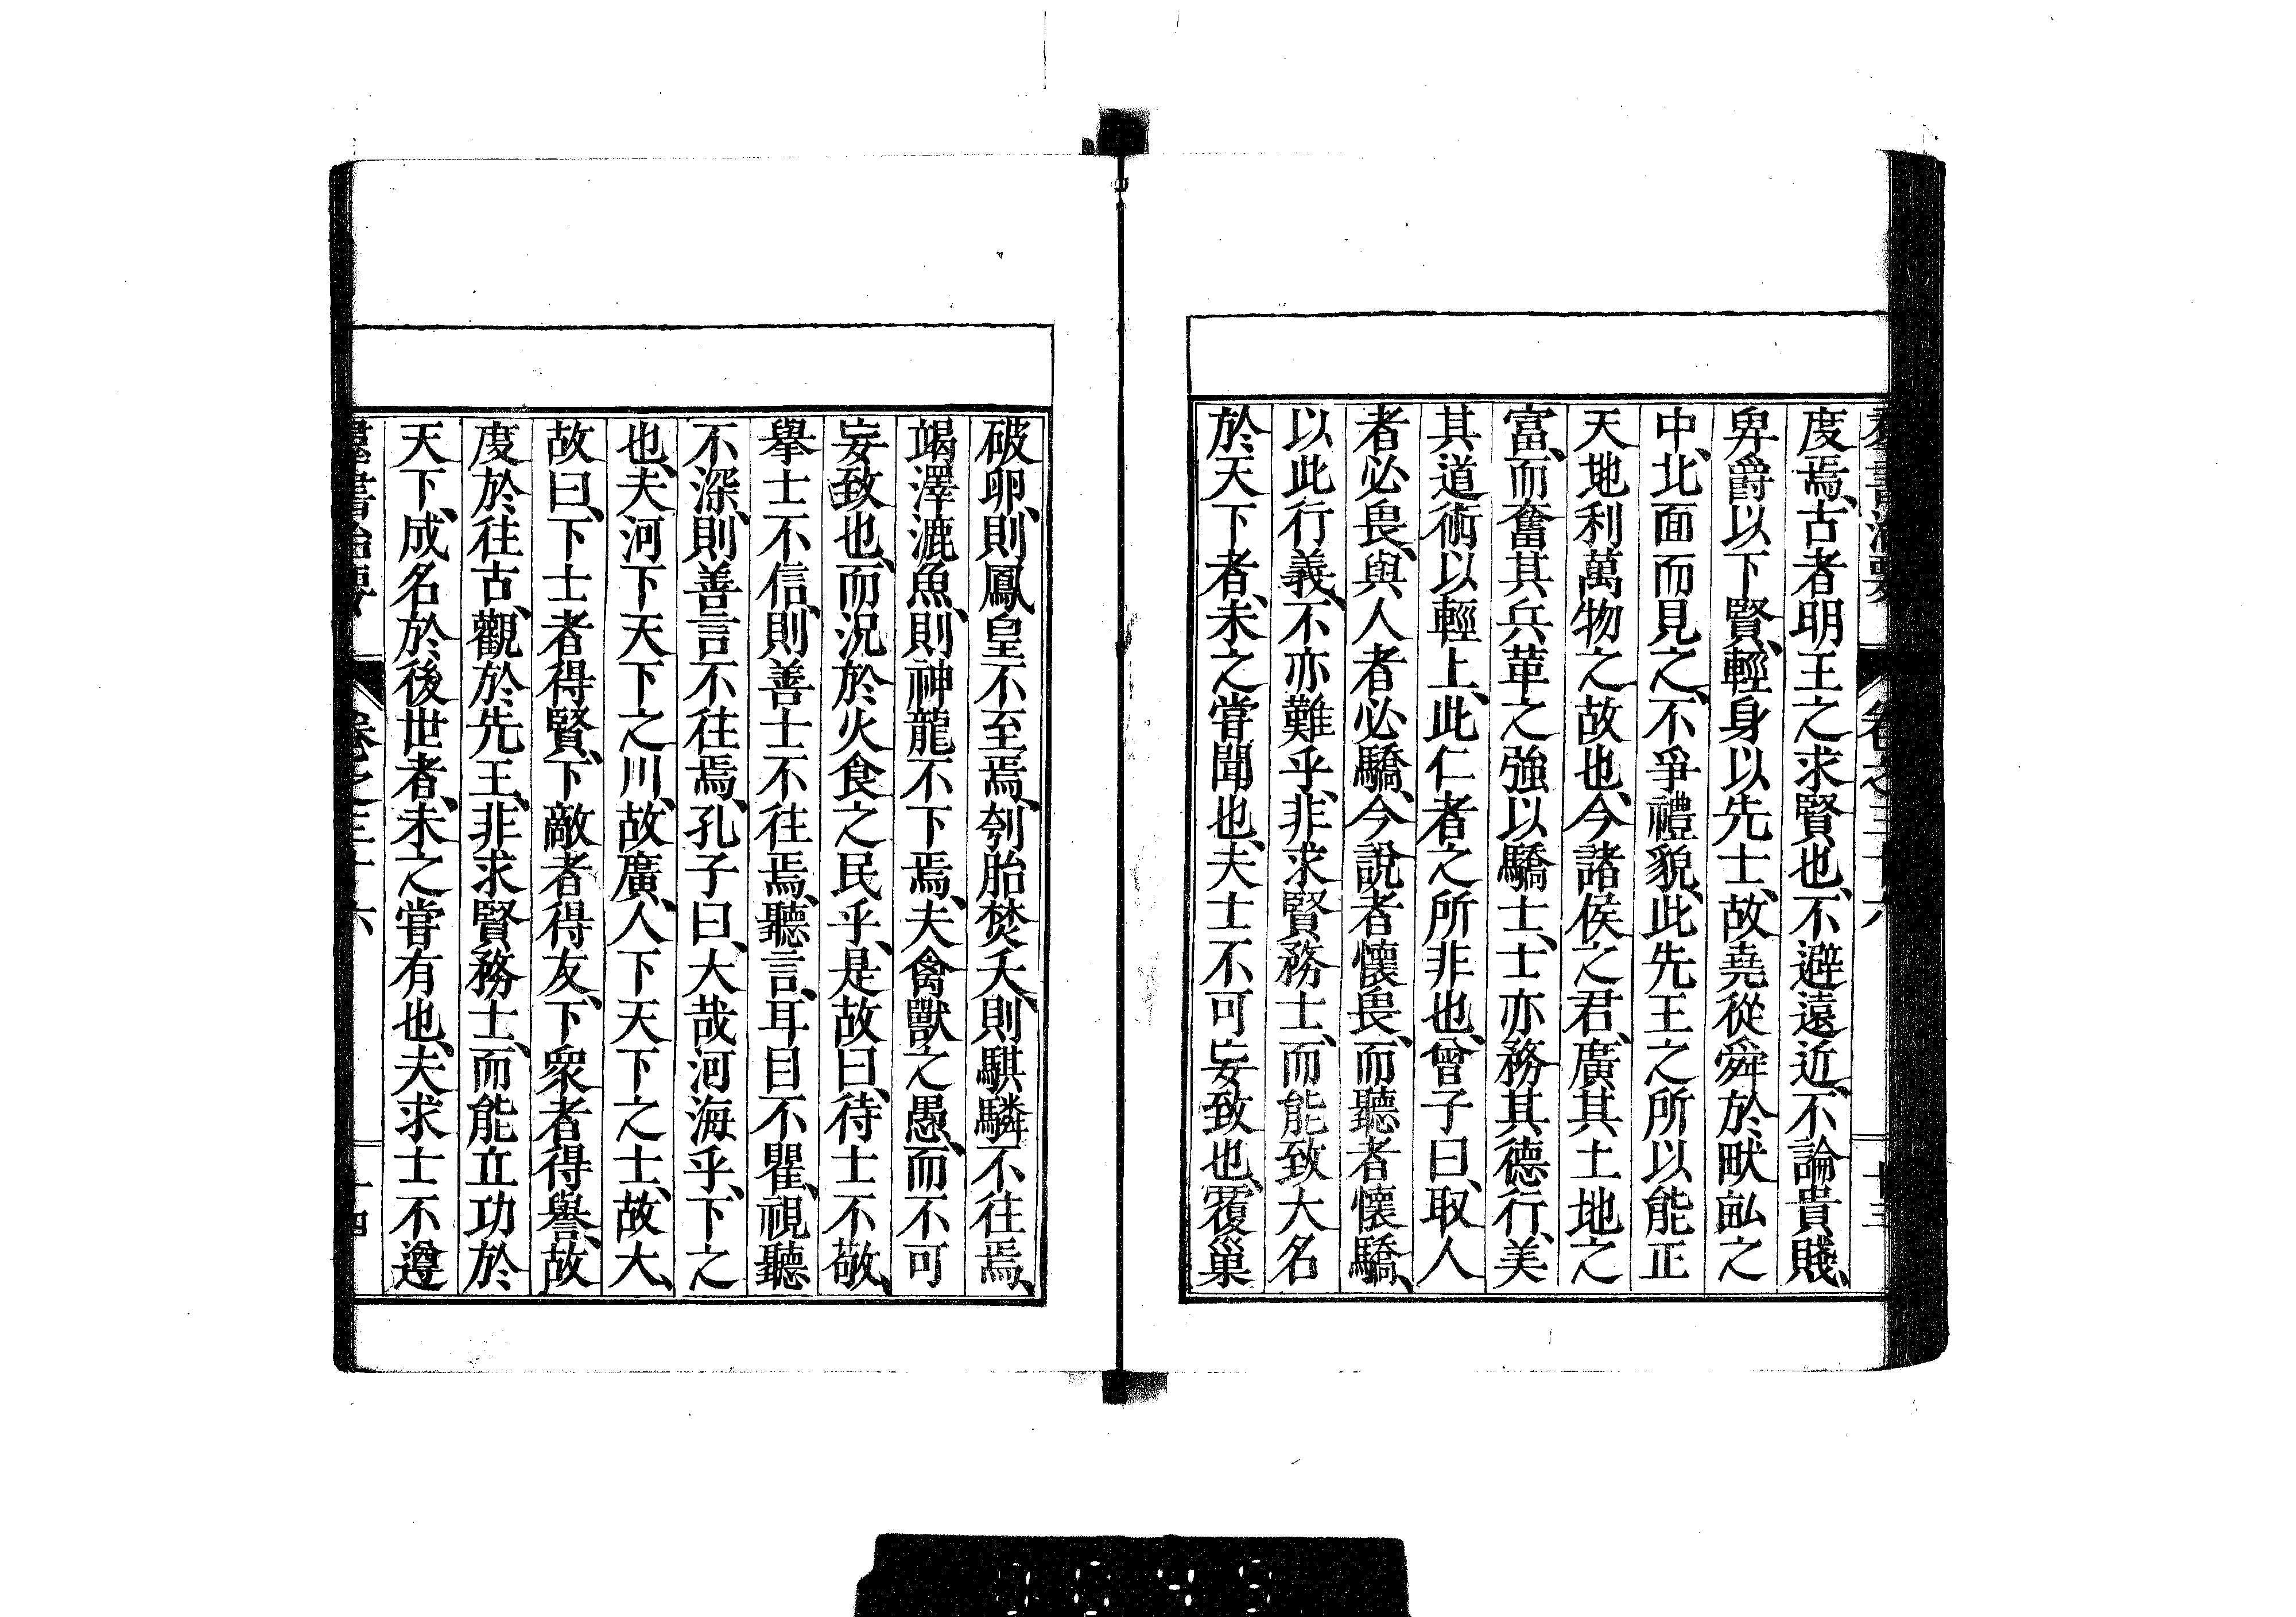 群書治要 卷之三十六 十三
度焉、古者明王之求賢也、不避遠近、不論貴賤、
卑爵以下賢、輕身以先士、故堯從舜於畎畝之
中、北面而見之、不爭禮貌、此先王之所以能正
天地利萬物之故也、今諸侯之君、廣其土地之
富、而奮其兵革之強以驕士、士亦務其德行、美
其道術以輕上、此仁者之所非也、曾子曰、取人
者必畏、與人者必驕、今說者懷畏、而聽者懷驕、
以此行義、不亦難乎、非求賢務士、而能致大名
於天下者、未之嘗聞也、夫士不可妄致也、覆巢
破卵、則鳳皇不至焉、刳胎焚夭、則騏驎不往焉、
竭澤漉魚、則神龍不下焉、夫禽獸之愚、而不可
妄致也、而況於火食之民乎、是故曰、待士不敬、
舉士不信、則善士不往焉、聽言、耳目不瞿、視聽
不深、則善言不往焉、孔子曰、大哉河海乎、下之
也、夫河下天下之川、故廣、人下天下之士、故大、
故曰、下士者得賢、下敵者得友、下衆者得譽、故
度於往古、觀於先王、非求賢務士、而能立功於
天下、成名於後世者、未之嘗有也、夫求士不遵
羣書治要 卷之三十六 十四